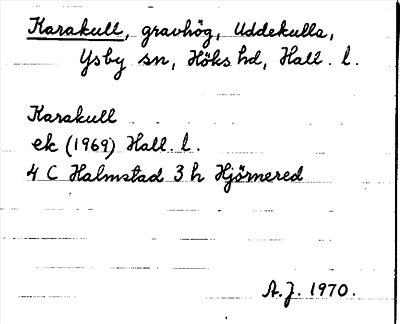 Karakull, gravhög, Uddekulla,
Ysby sn, Höks hd, Hall. l.
Karakull
ek (1969) Hall. l.
4 C Halmstad 3 h Hjörnered
A.J. 1970.